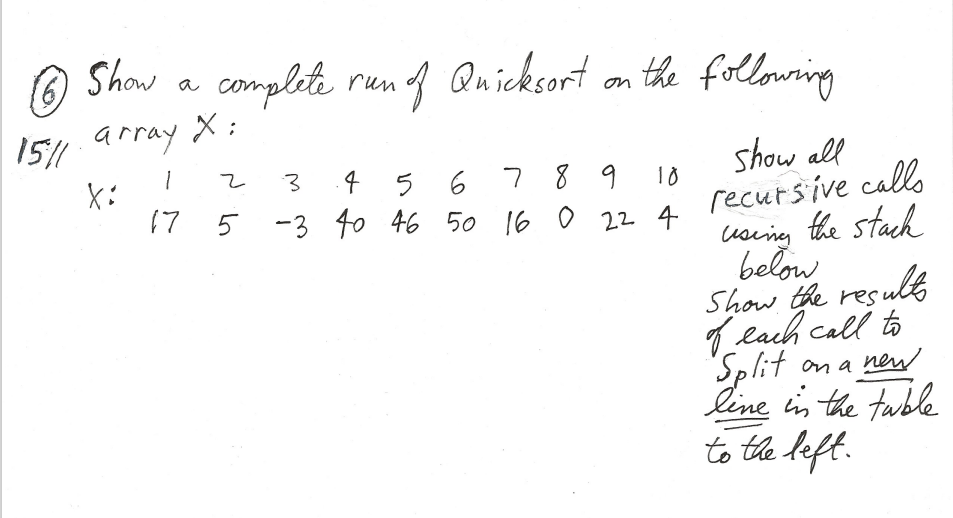 ⑥ Show a complete run of Quicksort on the following
15// array X:
X: 1 2 3 4 5 6 7 8 9 10
17 5 -3 40 46 50 16 0 22 4
Show all
recursive calls
using the stack
below
Show the results
of each call to
Split on a new
line in the table
to the left.